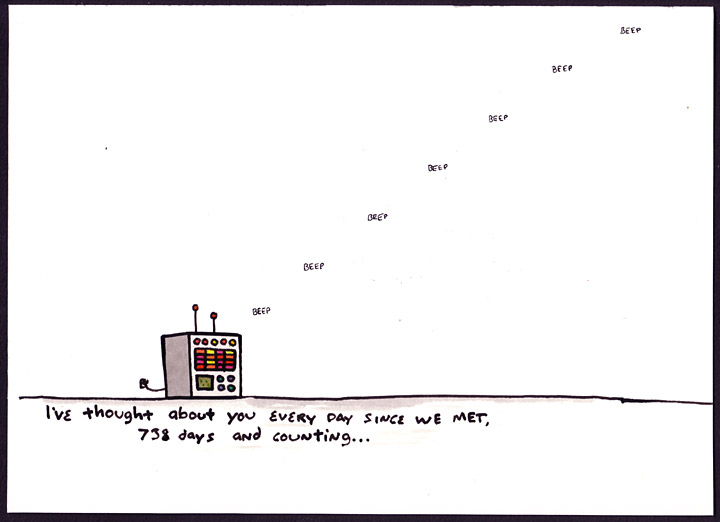 BEEP
BEEP
BEEP
BEEP
BEEP
BEEP
BEEP
I'VE thought about you EVERY DAY SINCE WE MET,
738 days and counting...